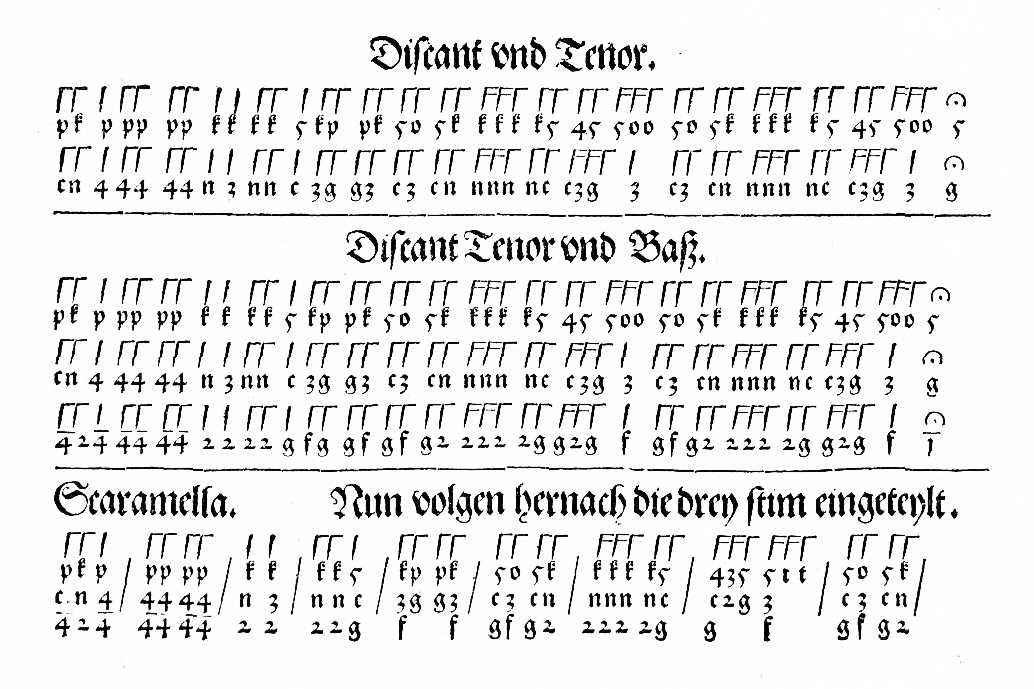 Discant vnd Tenor.
pk p pp pp k k k k 5 kp pk 5o 5k k k k k5 45 5oo 5o 5k k k k k5 45 5oo 5
cn 4 44 44 n 3 nn c 3g g3 c3 cn nnn nc c3g 3 c3 cn nnn nc c3g 3 g
Discant Tenor vnd Baß.
pk p pp pp k k k k 5 kp pk 5o 5k k k k k5 45 5oo 5o 5k k k k k5 45 5oo 5
cn 4 44 44 n 3 nn c 3g g3 c3 cn nnn nc c3g 3 c3 cn nnn nc c3g 3 g
4 2 4 44 44 2 2 2 2 g fg gf gf g2 222 2g g2g f gf g2 222 2g g2g f 1
Scaramella. Nun volgen hernach die drey stim eingeteylt.
pk p / pp pp / k k / k k 5 / kp pk / 5o 5k / k k k k5 / 435 5 t t / 5o 5k /
c n 4 / 44 44 / n 3 / n n c / 3g g3 / c 3 cn / nnn nc / c2g 3 / c 3 cn /
4 2 4 44 44 2 2 2 2 g f f gf g2 222 2g g f gf g2